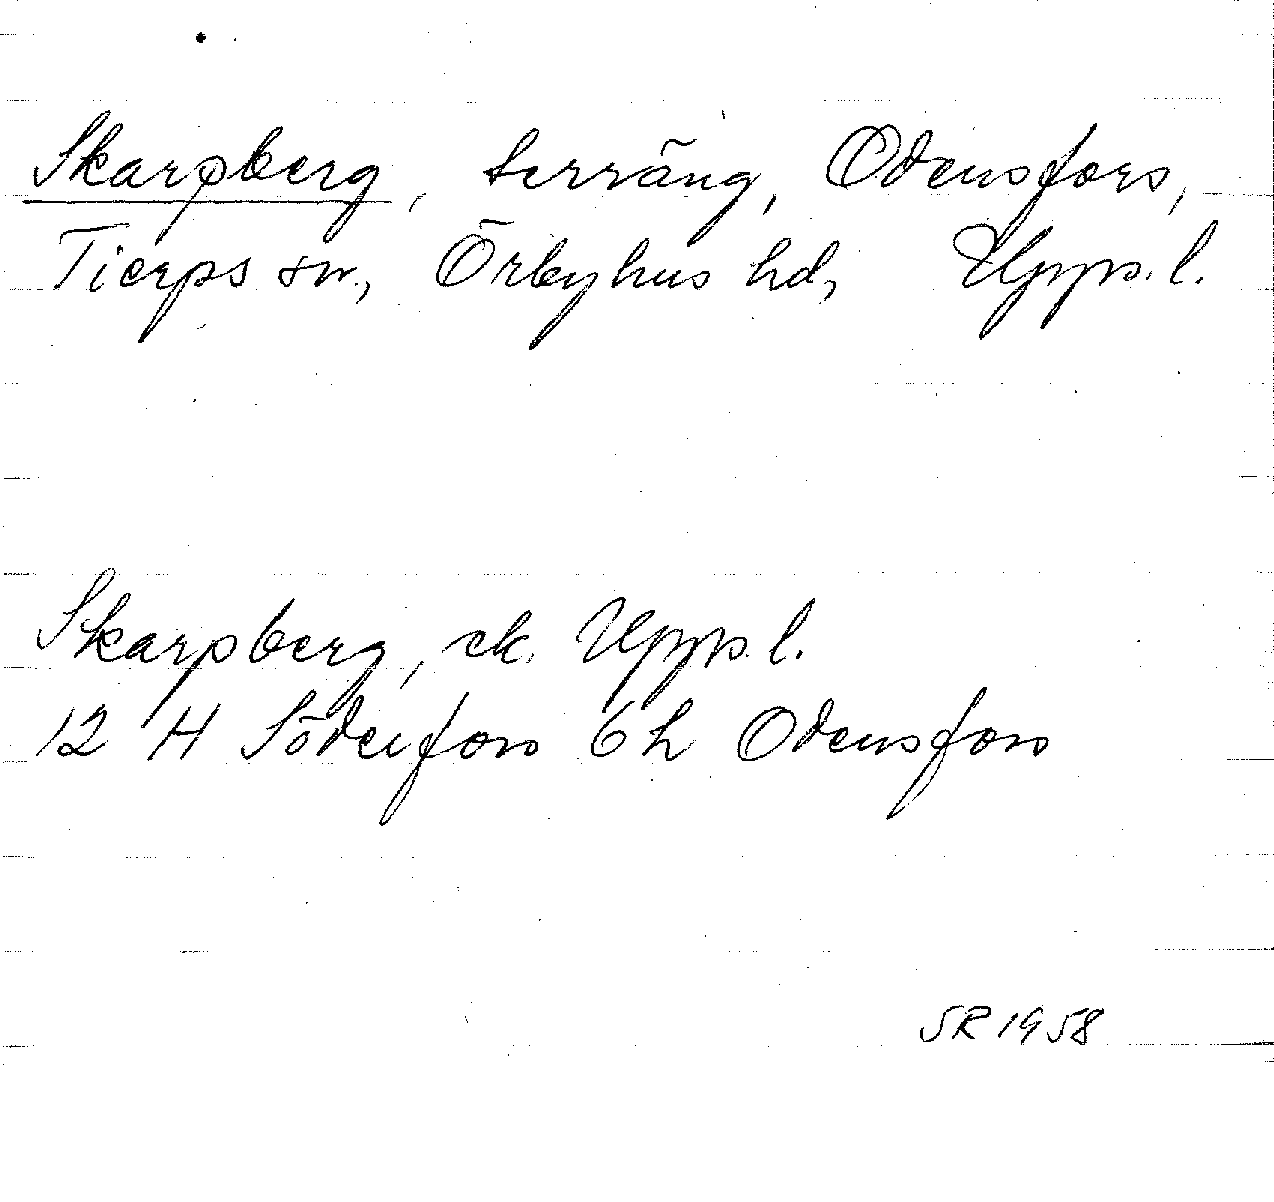 Skarpberg, terräng, Odensfors,
Tierps sn., Örbyhus hd, Upps. l.
Skarpberg, ek. Upps. l.
12 H Söderfors 6 h Odensfors
SR 1958